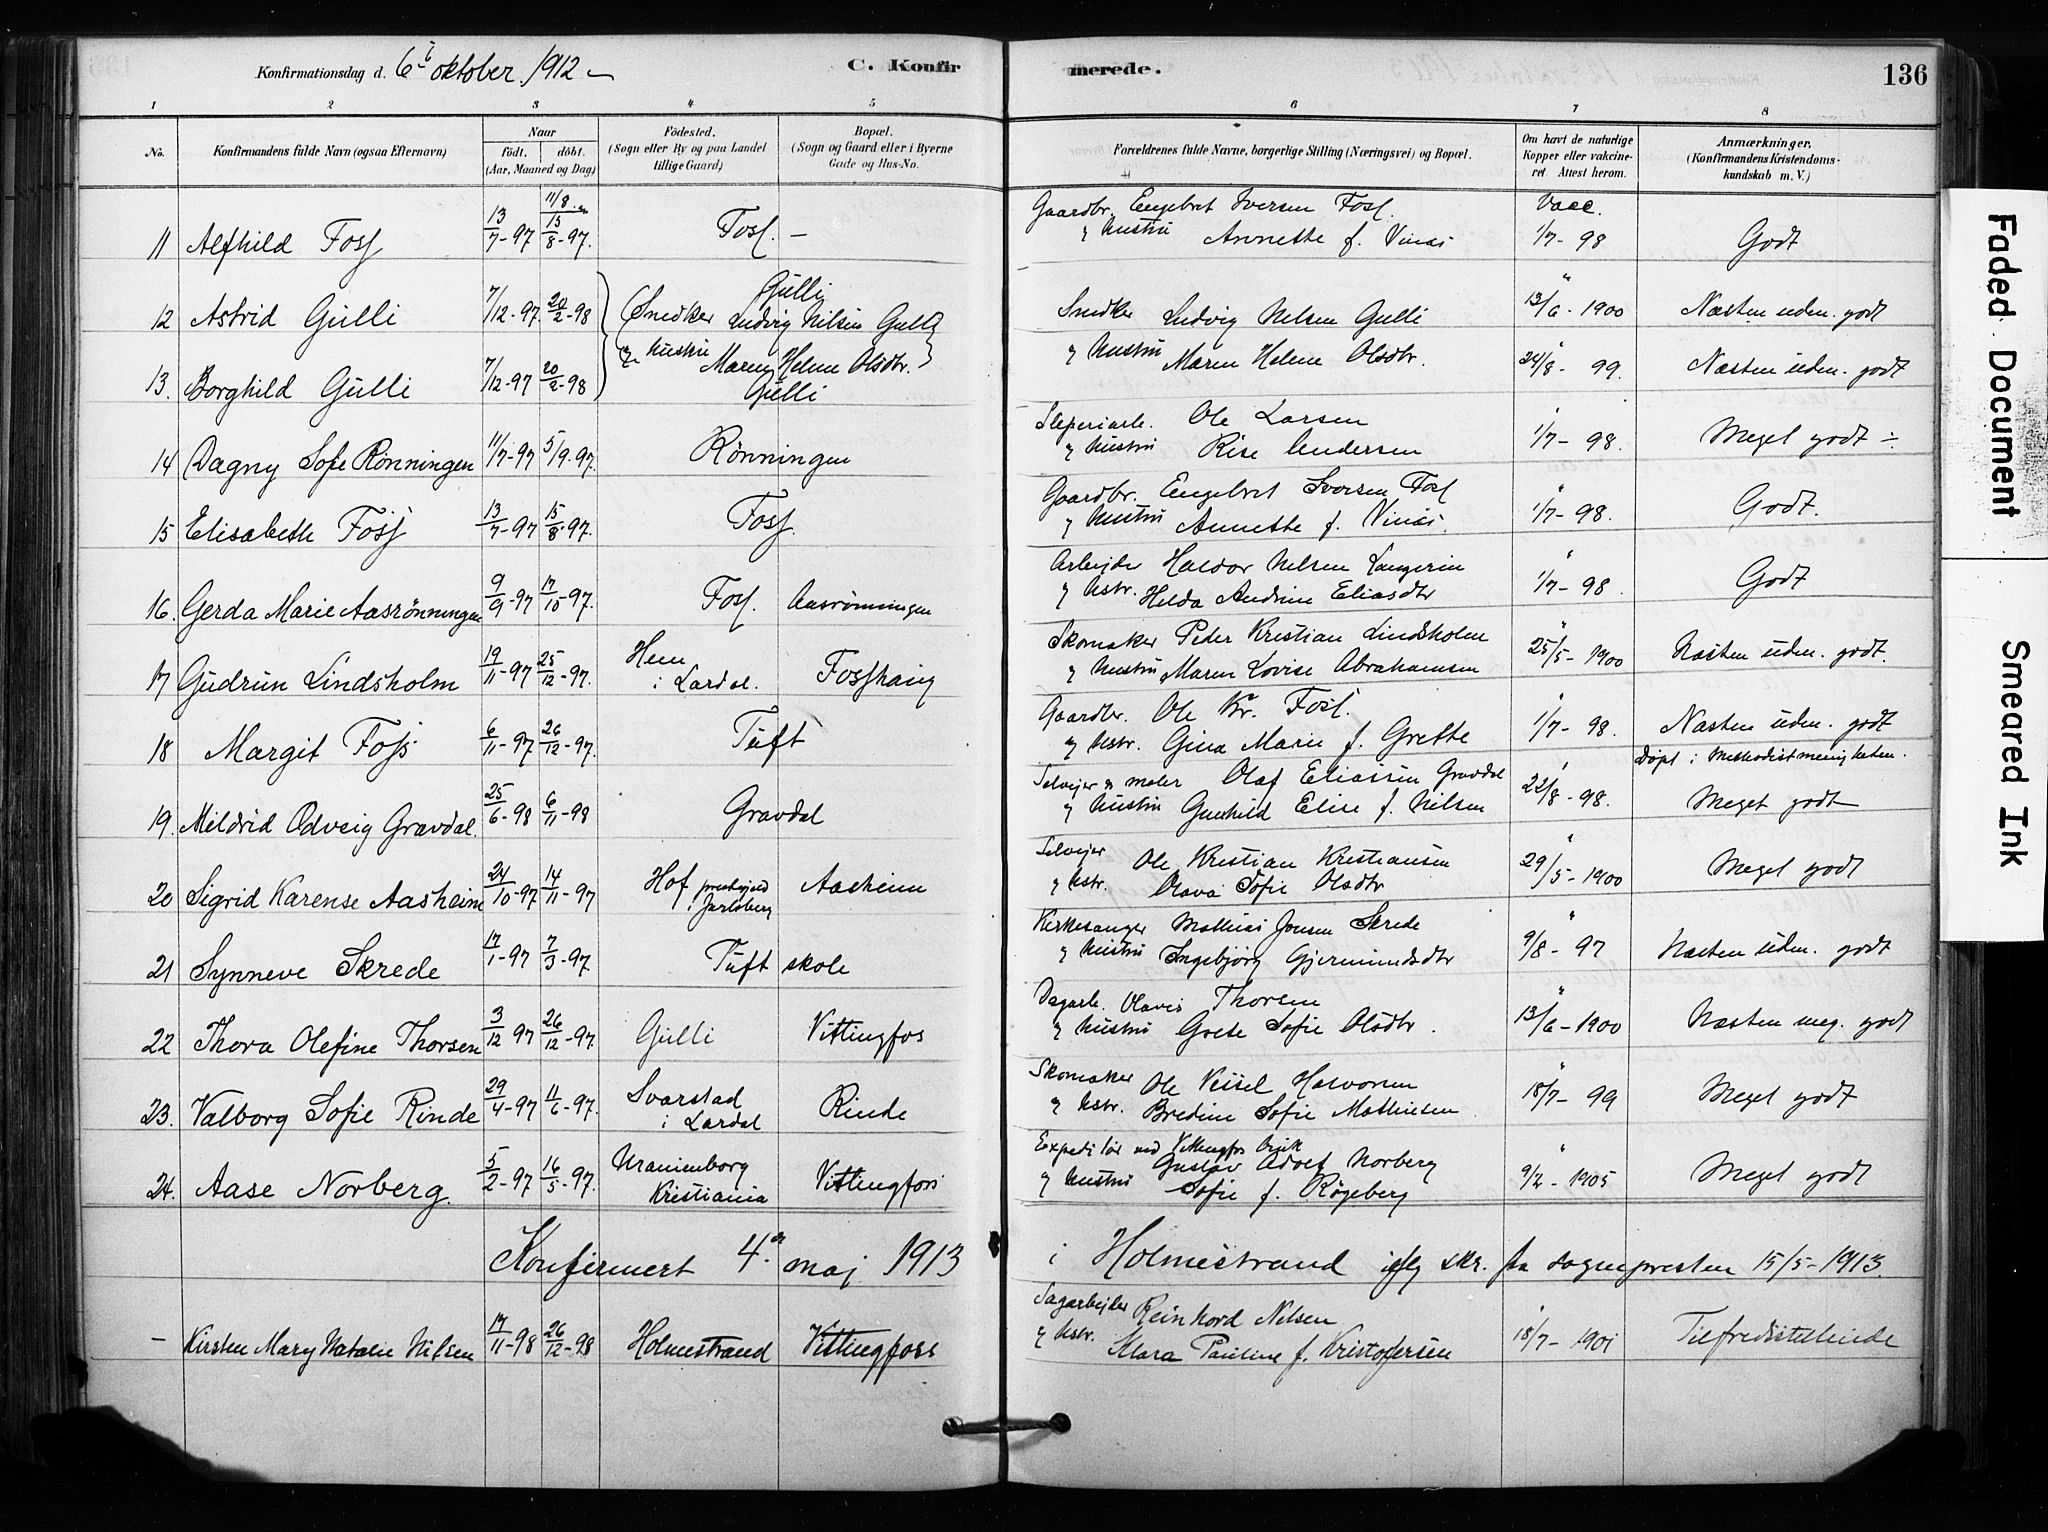 Konfirmationsdag d. 6te oktober 1912 –
C. Konfirmerede.
136
1 2 3 4 5 6 7 8
No.
Konfirmandens fulde Navn (ogsaa Efternavn)
Naar
født. døbt.
(Aar, Maaned og Dag)
Fødested.
(Sogn eller By og paa Landet tillige Gaard)
Bopæl.
(Sogn og Gaard eller i Byerne Gade og Hus-No.
Forældrenes fulde Navne, borgerlige Stilling (Næringsvei) og Bopæl.
Om havt de naturlige Kopper eller vakcineret. Attest herom.
Anmærkninger,
(Konfirmandens Kristendomskundskab m. V.)
11 Alfhild Foss 13/7-97 11/8 15/8-97. Foss. – Gaardbr. Engebret Iversen Foss. Vacc.
& Hustru Annette f. Vinæs 1/7-98 Godt
12 Astrid Gulli 7/12-97. 20/2-98 Gulli
(Snedker Ludvig Nilsen Gulli Snedker Ludvig Nelsen Gulli " 13/6-1900 Næsten uden. godt
& Hustru Maren Helene Olsdtr.) & Hustru Maren Helene Olsdtr. " 24/8-99. Næsten uden. godt
13. Borghild Gulli 7/12-97 20/2-98 Gulli
14 Dagny Sofie Rønningen 11/7-97 5/9-97. Rønningen Sliperiarb. Ole Larsen
& Hustru Rise Andersen " 1/7-98. Meget godt ÷
15 Elisabeth Foss 13/7-97 15/8-97. Foss. Gaardbr. Engebret Iversen Foss
& Hustru Annette f. Vinæs. " 1/7-98. Godt.
16. Gerda Marie Aasrønningen 9/9-97 17/10-97. Foss. Aasrønningen Arbejder Haldor Nelsen Langerin
& Hstr. Helda Andrine Eliasdtr " 1/7-98. Godt
17 Gudrun Lindsholm 19/11-97 25/12-97. Hem i Lardal. Fosshaug Skomaker Peder Kristian Lindsholm
& Hustru Maren Lovise Abrahamsen " 25/5-1900 Næsten uden. godt.
18 Margit Foss 6/11-97 26/12-97. Tuft Gaardbr. Ole Kr. Foss.
& Hstr. Gina Marie f. Grette " 1/7-98. Næsten uden. godt
Døpt i Methodistmenigheten.
19. Mildrid Odveig Gravdal. 25/6-98 6/11-98 Gravdal Selvejer & maler Olaf Eliassen Gravdal
& Hustru Gunhild Elise f. Nilsen " 22/8-98. Meget godt
20 Sigrid Karense Aasheim 24/10-97 14/11-97 Hof prestegjeld i Jarlsberg Aasheim Selvejer Ole Kristian Kristiansen
& Hstr. Olava Sofie Olsdtr " 29/5-1900 Meget godt
21 Synneve Skrede 17/1-97 7/3-97. Tuft skole Kirkesanger Mathias Jonsen Skrede
& Hustru Ingebjørg Gjermundsdtr " 9/8-97 Næsten uden. godt
22 Thora Olefine Thorsen 3/12 97 26/12-97. Gulli Vittingfos Dagarb. Olavis Thorsen
& Hustru Grete Sofie Olsdtr. " 13/6-1900 Næsten meg. godt
23. Valborg Sofie Rinde 29/4-97 11/6-97. Svarstad i Lardal Rinde Skomaker Ole Vessel Halvorsen
& Hstr. Bredine Sofie Mathiesen. " 18/7-99 Meget godt
24. Aase Norberg. 5/2-97 16/5-97. Uranienborg Kristiania Vittingfoss Expeditør ved Vittingfos Bruk
Gustav Adolf Norberg
& Hustru Sofie f. Røgeberg " 9/2-1905 Meget godt
Konfirmert 4de maj 1913 i Holmestrand iflg skr. fra sognepresten 15/5-1913.
– Kirsten Mary Natalie Nilsen 17/11-98 26/12-98 Holmestrand Vittingfoss Sagarbejder Reinhord Nelsen
& Hstr. Klara Pauline f. Kristofersen " 18/7-1901 Tilfredsstillende
Faded Document
Smeared Ink